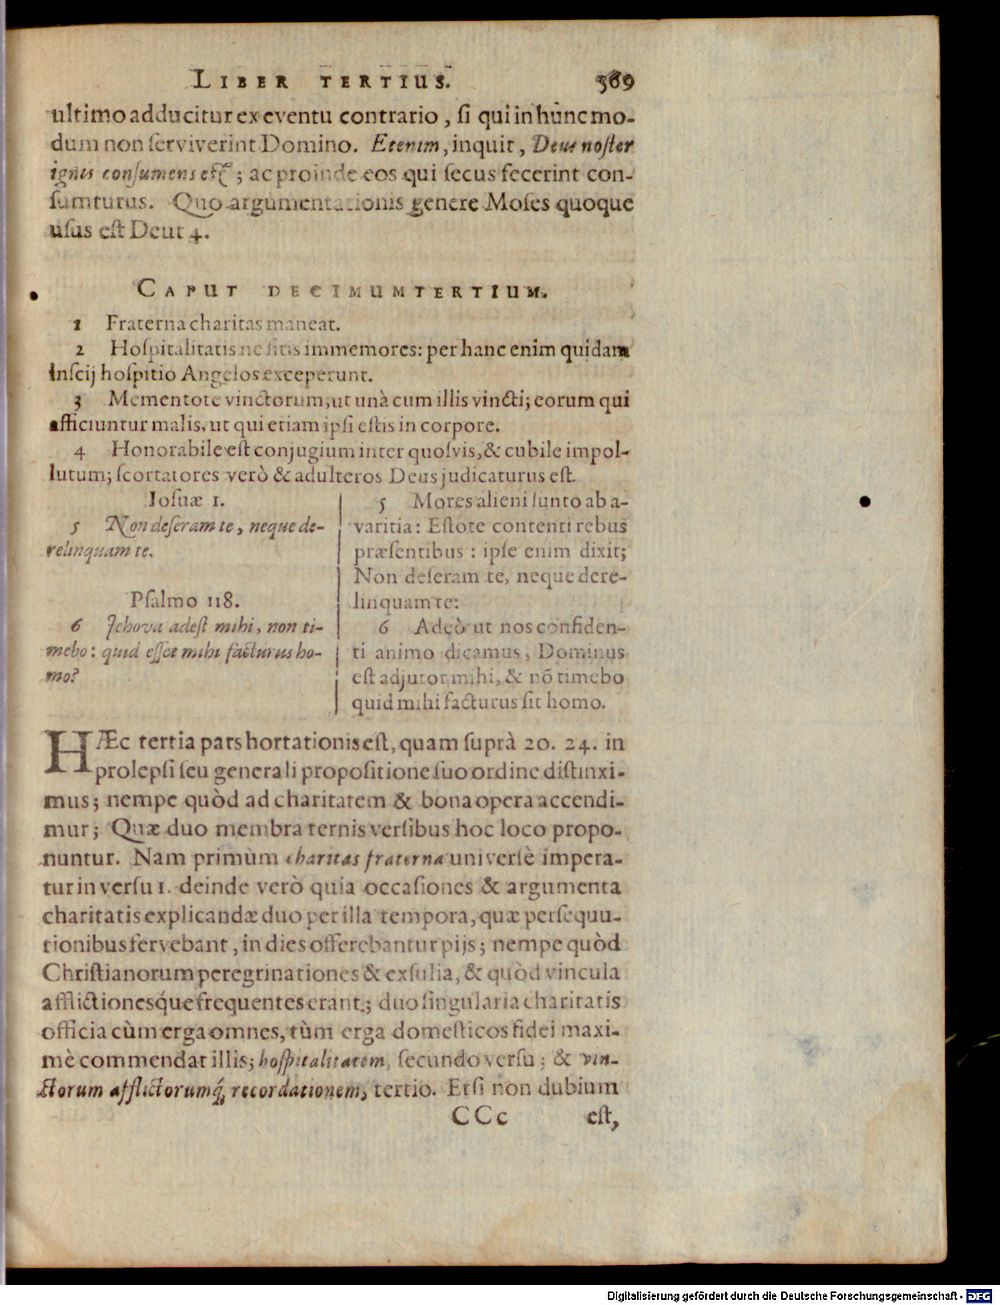 LIBER TERTIUS. 369
ultimo adducitur ex eventu contrario, si qui in hunc mo-
dum non serviverint Domino. Etenim, inquit, Deus noster
ignis consumens est; ac proinde eos qui secus fecerint con-
sumturus. Quo argumentationis genere Moses quoque
usus est Deut 4.
CAPUT DECIMUMTERTIUM.
1 Fraterna charitas maneat.
2 Hospitalitatis ne sitis immemores: per hanc enim quidam
inscij hospitio Angelos exceperunt.
3 Mementote vinctorum, ut unà cum illis vincti; eorum qui
afficiuntur malis, ut qui etiam ipsi estis in corpore.
4 Honorabile est conjugium inter quosvis, & cubile impol-
lutum; scortatores verò & adulteros Deus judicaturus est.
Iosuæ 1.
5 Non deseram te, neque de-
relinquam te.
Psalmo 118.
6 Jehova adest mihi, non ti-
mebo: quid esset mihi facturus ho-
mo?
5 Mores alieni sunto ab a-
varitia: Estote contenti rebus
præsentibus: ipse enim dixit;
Non deseram te, neque dere-
linquam te:
6 Adeò ut nos confiden-
ti animo dicamus, Dominus
est adjutor mihi, & nõ timebo
quid mihi facturus sit homo.
HÆc tertia pars hortationis est, quam suprà 20. 24. in
prolepsi seu generali propositione suo ordine distinxi-
mus; nempe quòd ad charitatem & bona opera accendi-
mur; Quæ duo membra ternis versibus hoc loco propo-
nuntur. Nam primùm charitas fraterna universè impera-
tur in versu 1. deinde verò quia occasiones & argumenta
charitatis explicandæ duo per illa tempora, quæ persequu-
tionibus fervebant, in dies offerebantur pijs; nempe quòd
Christianorum peregrinationes & exsulia, & quòd vincula
afflictionesq́ue frequentes erant; duo singularia charitatis
officia cùm erga omnes, tùm erga domesticos fidei maxi-
mè commendat illis; hospitalitatem, secundo versu; & vin-
ctorum afflictorumq́; recordationem, tertio. Etsi non dubium
CCc est,
Digitalisierung gefördert durch die Deutsche Forschungsgemeinschaft - DFG